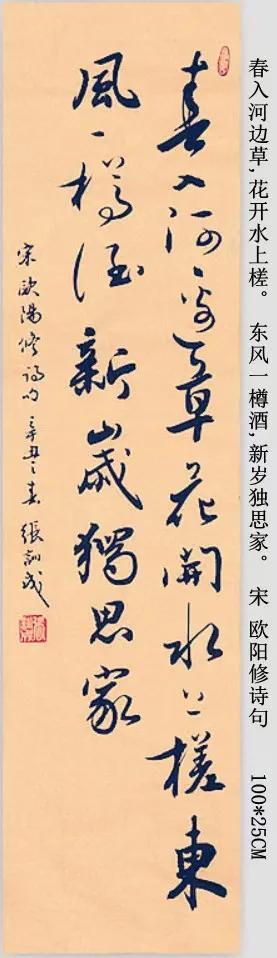 春入河边草,花开水上槎。 东风一樽酒,新岁独思家。 宋 欧阳修诗句 100*25CM
春入河邊草花開水上槎東
風一樽酒新歲獨思家
宋歐陽修詩句 辛丑之春 張訓成